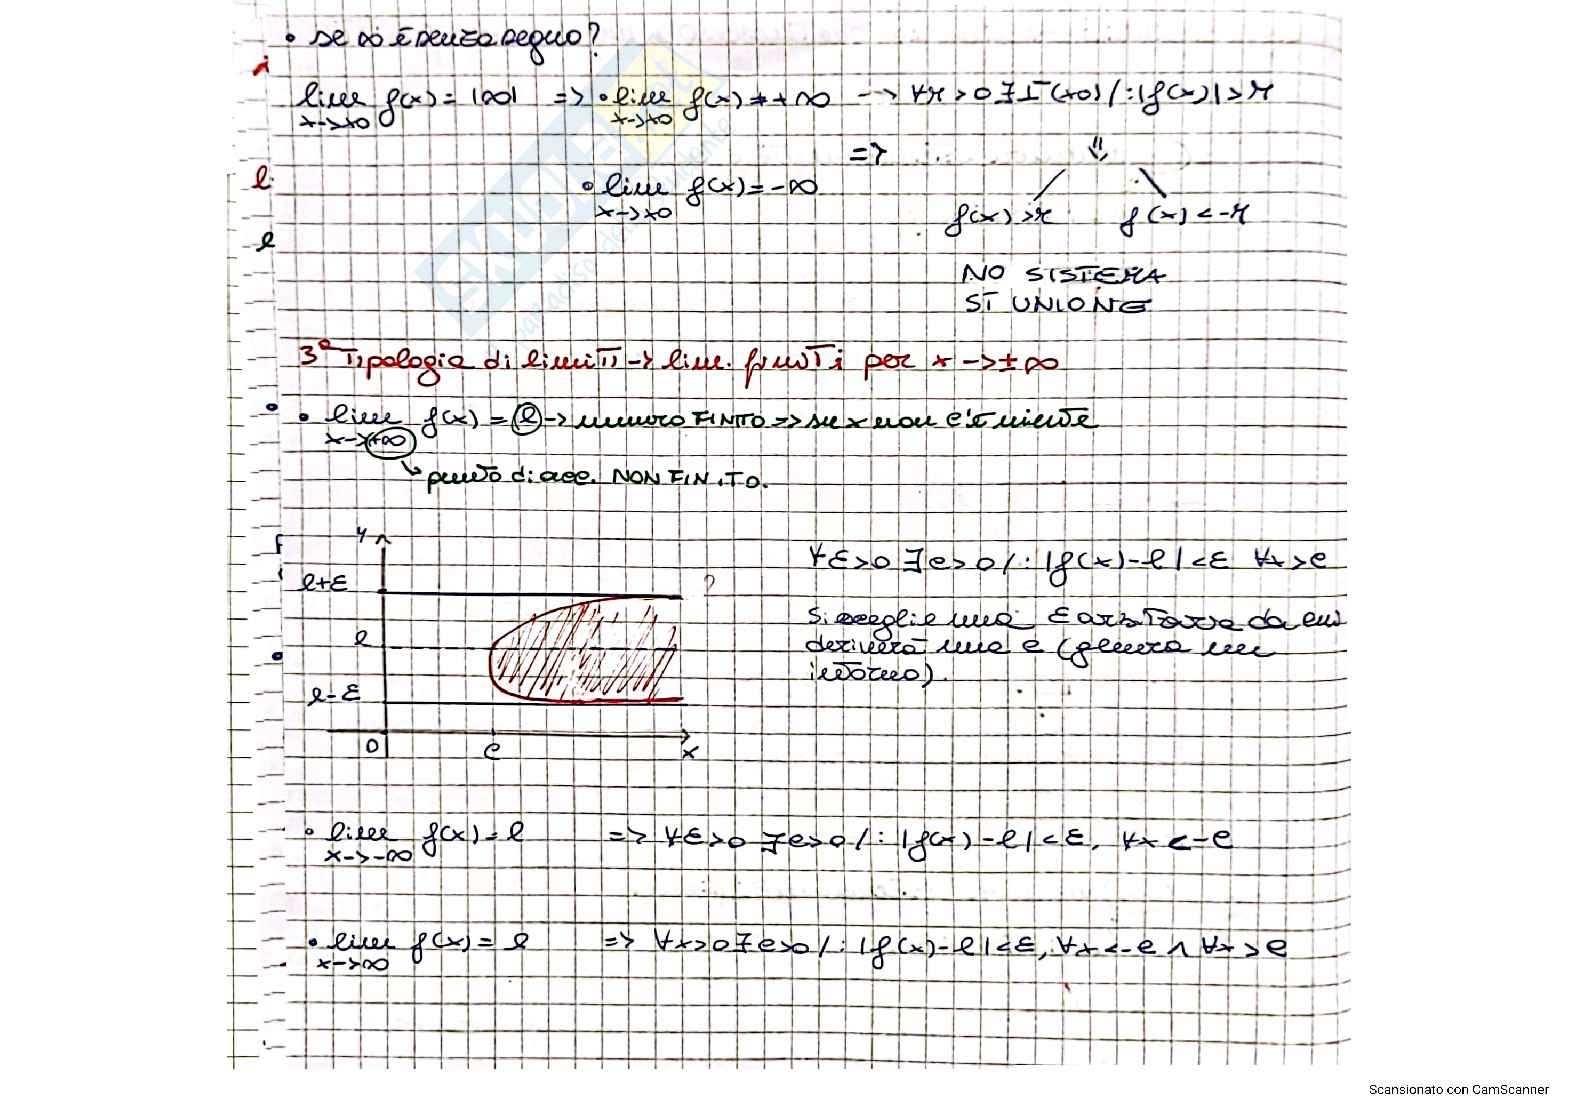 • se ∞ è senza segno?
lim f(x) = |∞| => • lim f(x) = +∞ --> ∀M > 0 ∃ I (x0) /: |f(x)| > M
x->x0 x->x0
=> ⇓
• lim f(x) = -∞
x->x0
f(x) > M f(x) < -M
NO SISTEMA
SI UNIONE
3ª Tipologia di limiti -> lim. finiti per x -> ±∞
• lim f(x) = l -> numero FINITO => su x non c'è niente
x->+∞
↳ punto di acc. NON FINITO.
y
l+ε ?
l
l-ε
0 c x
∀ε>0 ∃c>0 /: |f(x)-l|<ε ∀x>c
Si sceglie una ε arbitraria da cui
deriverà una c (genera un
intorno).
• lim f(x) = l => ∀ε>0 ∃c>0 /: |f(x)-l|<ε, ∀x<-c
x->-∞
• lim f(x) = l => ∀x>0 ∃c>0 /: |f(x)-l|<ε, ∀x<-c ∧ ∀x>c
x->∞
Scansionato con CamScanner